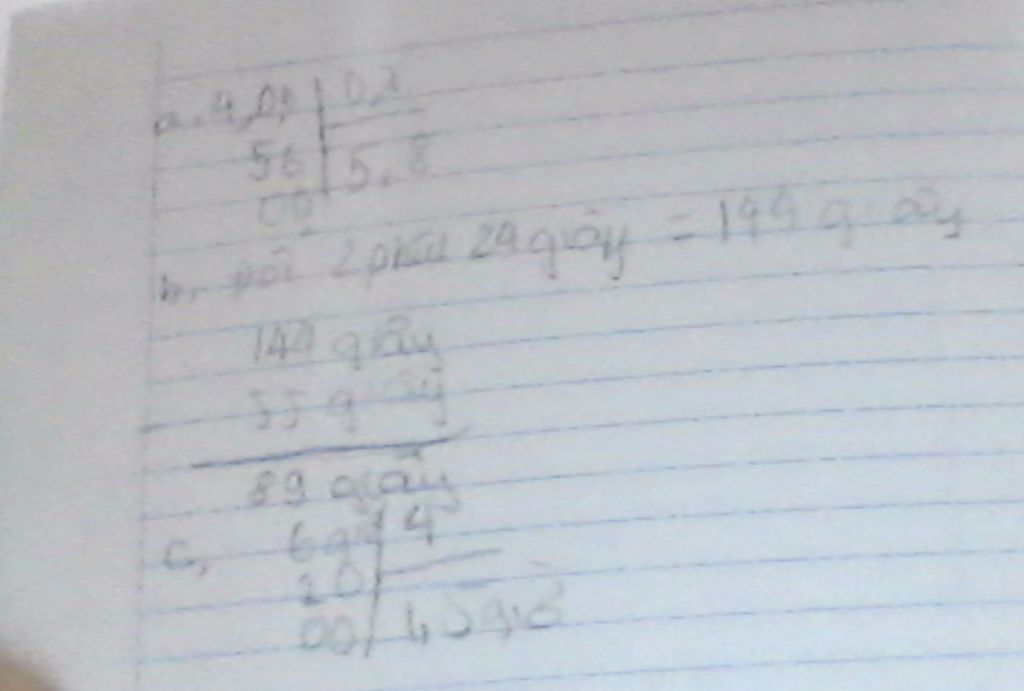 a, 4,06 | 0,7
56 | 5,8
00
b, đổi 2 phút 24 giây = 144 giây
144 giây
55 giây
89 giây
c, 6 giờ | 4
20
00 | 1,5 giờ